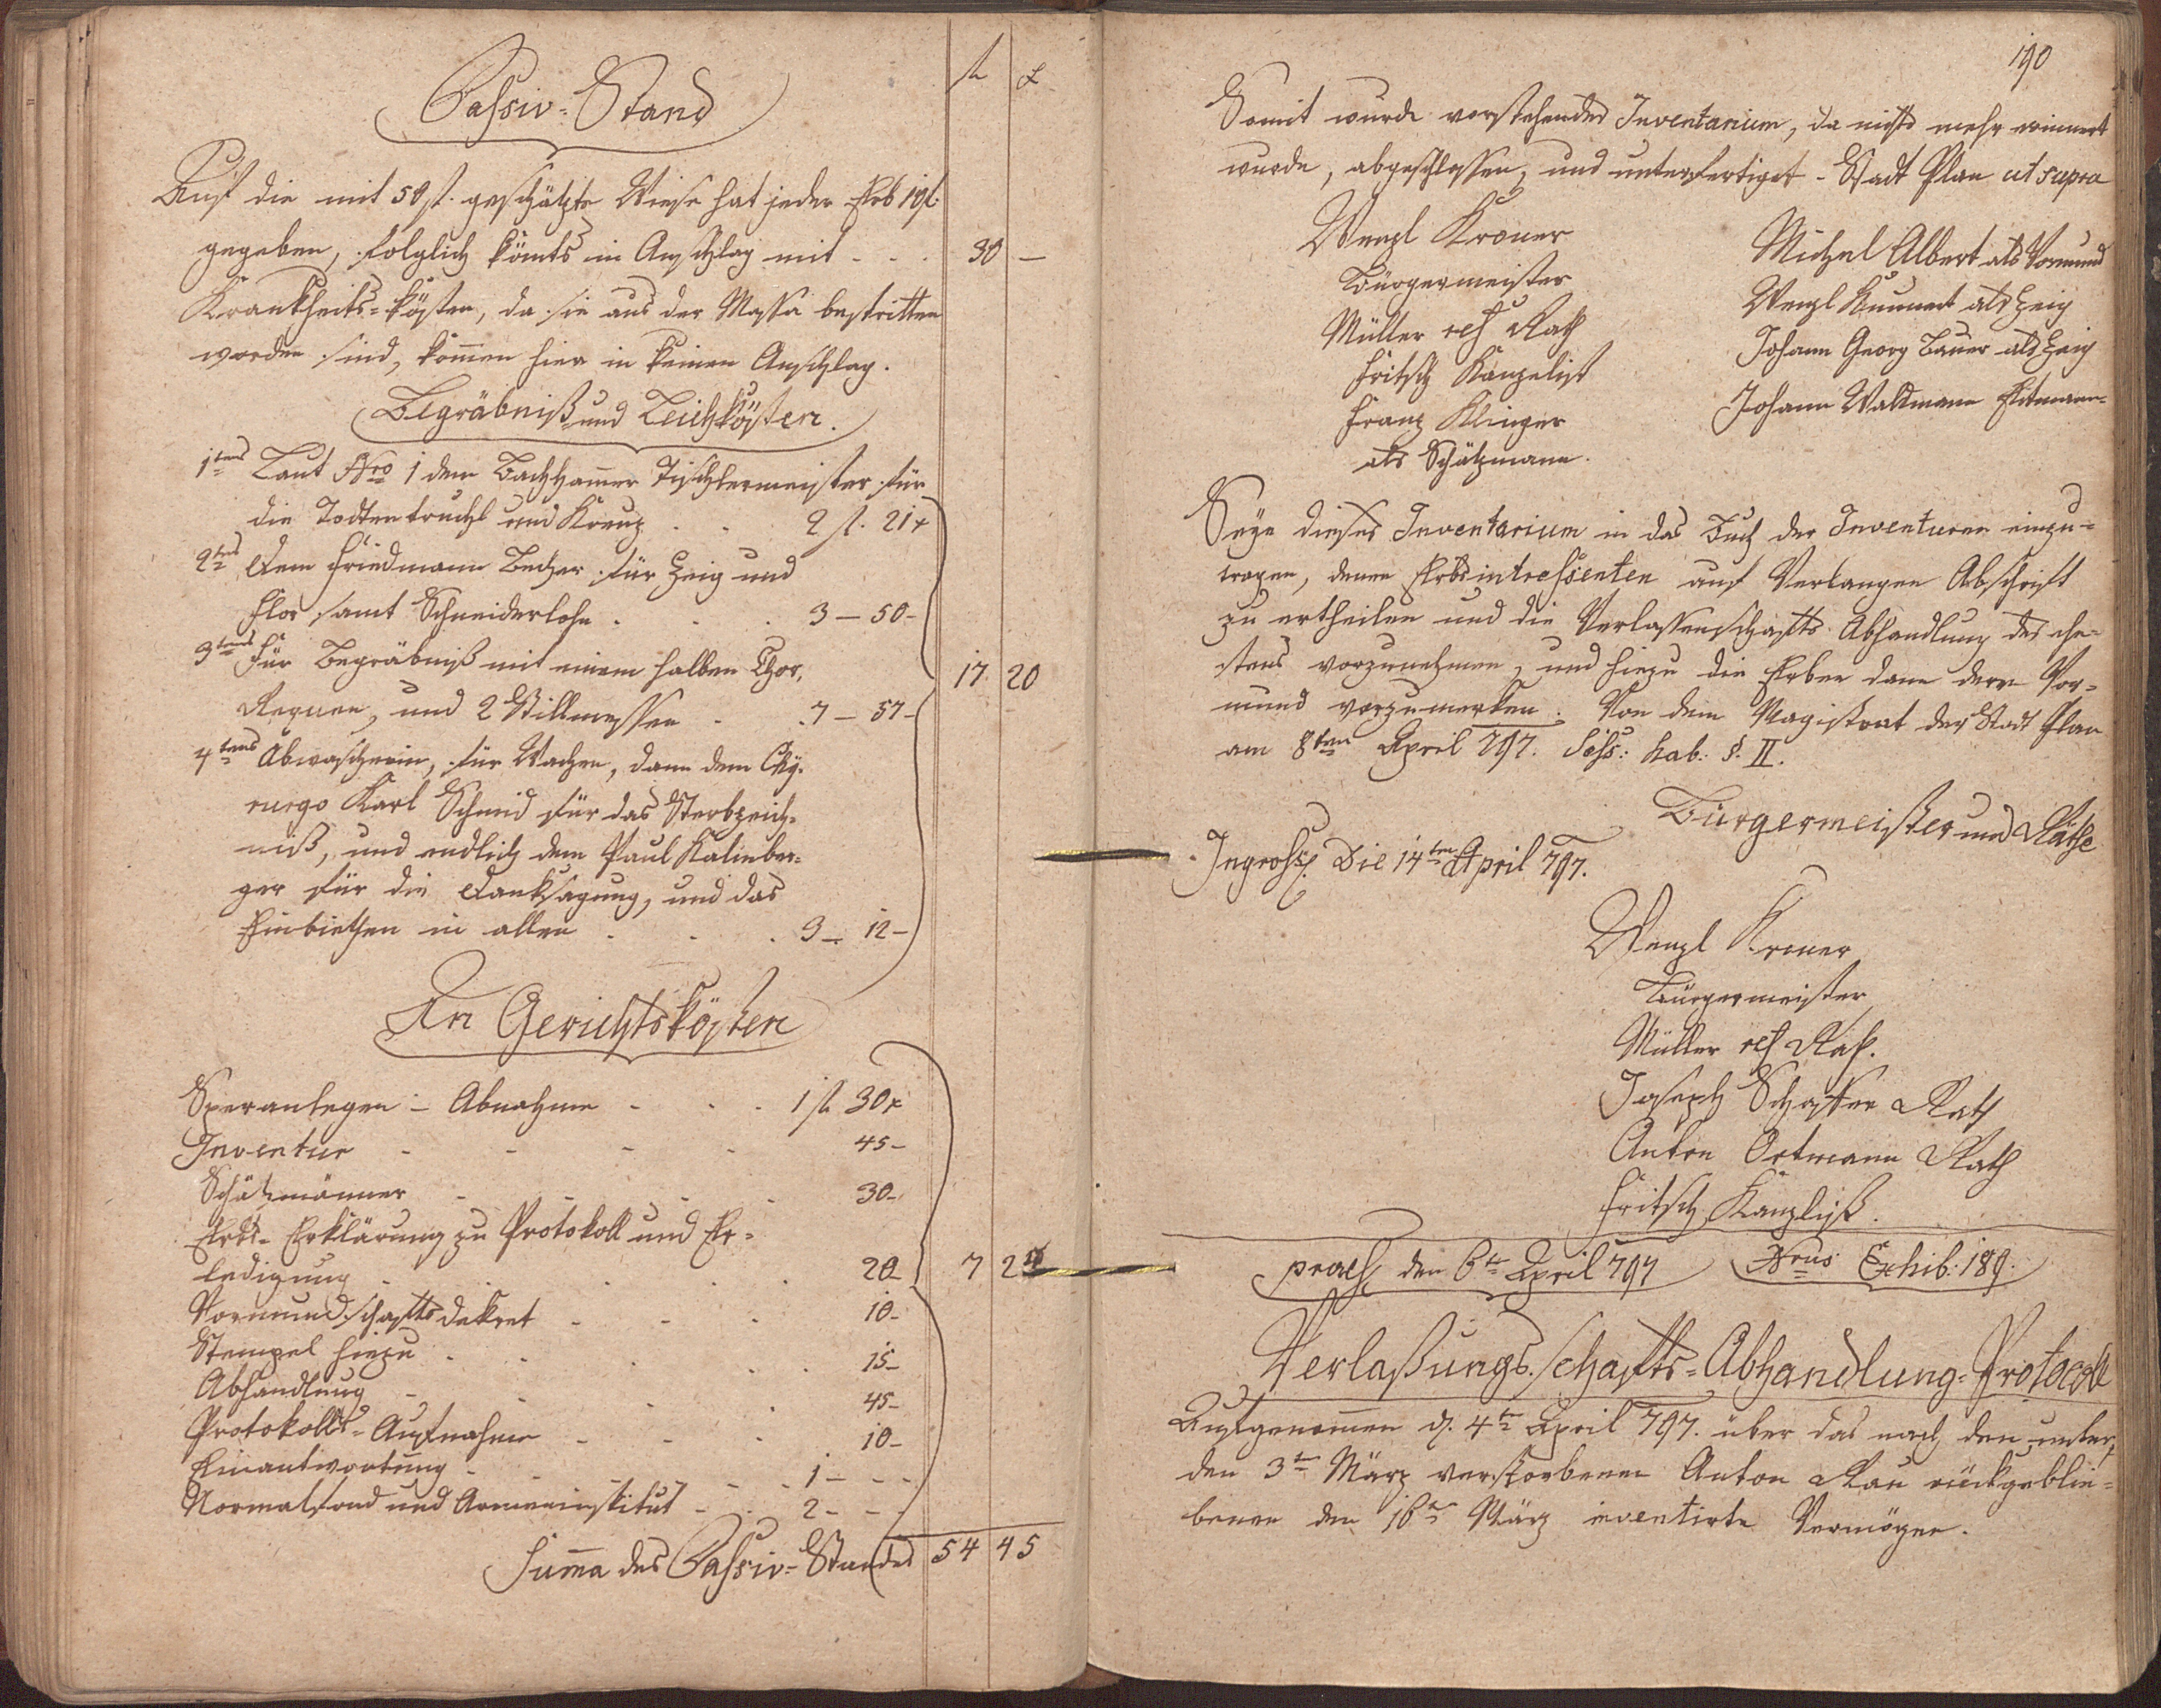 fl x
Passiv-Stand
Auf die mit 50 fl. geschätzte Wiese hat jeder Erb 10 fl:
gegeben, folglich kömts in Anschlag mit - - - 30 —
Krankheits-kösten, da sie aus der Massa bestritten
worden sind, kommen hier in keinen Anschlag.
Begräbniß und Leichkösten.
1tens Laut Nro 1 dem Bachhamer Tischlermeister für
die Todtentruchl und Kreuz - - 2 fl. 21 x
2tens Dem Friedmann Becher für Zeig und
Flor samt Schneiderlohn - - - 3 — 50 -
3tens für Begräbniß mit einem halben Chor,
Requien, und 2 Stillmessen - - 7 — 57 -
17 20
4tens Abwascherin, für Wachen, dann dem Chy-
rurgo Karl Schmid für das Sterbzeich-
niß, und endlich dem Paul Kalinber-
ger für die Danksagung, und das
Einbiethen in allen - - - 3 — 12 -
An Gerichtskösten
Speranlegen - Abnahme - - - 1 fl 30 x
Inventur - - - - 45 -
Schätzmänner - - - - 30 -
Erbs-Erklärung zu Protokoll und Er-
ledigung - - - - 20 - 7 2
Vormundschaftsdekret - - - 10 -
Stempel hiezu - - - - 15 -
Abhandlung - - - - 45 -
Protokolls-Aufnahme - - - 10 -
Einantwortung - - - 1 - - -
Normalfond und Armeninstitut - - 2 - - -
Summa des Passiv-Standes 54 45
190
Somit wurde vorstehendes Inventarium, da nichts mehr erinnert
wurde, abgeschlossen, und unterfertiget - Stadt Plan ut supra
Wenzl Kroner
Bürgermeister
Müller Rath
Fritsch Kanzelist
Franz Klinger
als Schätzmann.
Michael Albert als Vormund
Wenzl Kunnert als Zeig
Johann Georg Bauer als Zeig
Johann Waldmann
Seye dieses Inventarium in das Buch der Inventuren einzu-
tragen, denen Erbsintressenten auf Verlangen Abschrift
zu ertheilen und die Verlassenschafts Abhandlung des ehe-
stens vorzunehmen, und hiezu die Erben dann deren Vor-
mund vorzumerken. Von dem Magistrat der Stadt Plan
am 8ten April 797. Sess: hab: §. II.
Bürgermeister und Räthe
Ingross. Die 14ten April 797.
Wenzl Kroner
Bürgermeister
Müller Rath.
Joseph Schaffer Rath
Anton Ortmann Rath
Fritsch Kanzlist.
praes den 6te April 797 Nrus Exhib: 189.
Verlaßungsschafts-Abhandlung-Protocoll
Aufgenommen d. 4te April 797. über das nach den unter
den 3te März verstorbenen Anton Rau rückgeblie-
benen den 16te März inventirte Vermögen.